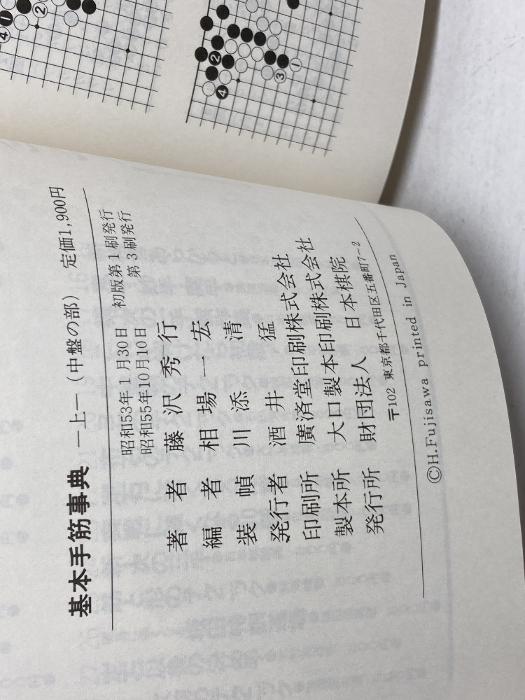 基本手筋事典 ―上―（中盤の部） 定価1,900円
昭和53年1月30日 初版第1刷発行
昭和55年10月10日 第3刷発行
著者 藤沢秀行
編者 相場一宏
装幀 川添清
発行者 酒井猛
印刷所 廣済堂印刷株式会社
製本所 大口製本印刷株式会社
発行所 財団法人 日本棋院
〒102 東京都千代田区五番町7−2
©H.Fujisawa printed in Japan